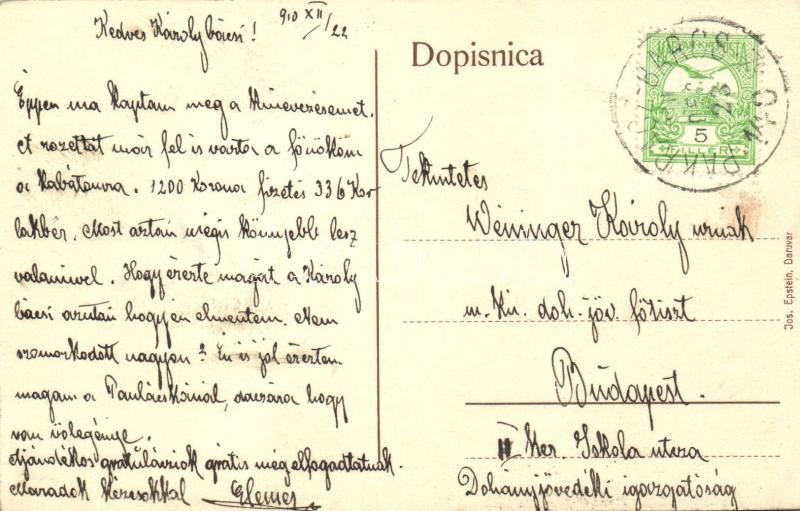 910 XII/22
Kedves Károly bácsi!
Éppen ma kaptam meg a kinevezésemet.
A rozettát már fel is varrta a főnököm
a kabátomra. 1200 Korona fizetés 336 Kor
lakbér. Most aztán mégis könnyebb lesz
valamivel. Hogy érezte magát a Károly
bácsi azután hogy én elmentem. Nem
szomorkodott nagyon? Én is jól éreztem
magam a Paulácskánál, daczára hogy
van vőlegénye.
Ajándékos gratulácziók grátis még elfogadtatnak.
Maradok kézcsókkal Elemér
Dopisnica
MAGYAR KIR. POSTA
5
FILLÉR
PAKRAC-BARCS
910 DEC 23
Tekintetes
Weininger Károly urnak
m. kir. doh. jöv. főtiszt
Budapest.
II Ker. Iskola utcza
Dohányjövedéki igazgatóság
Jos. Epstein, Daruvar